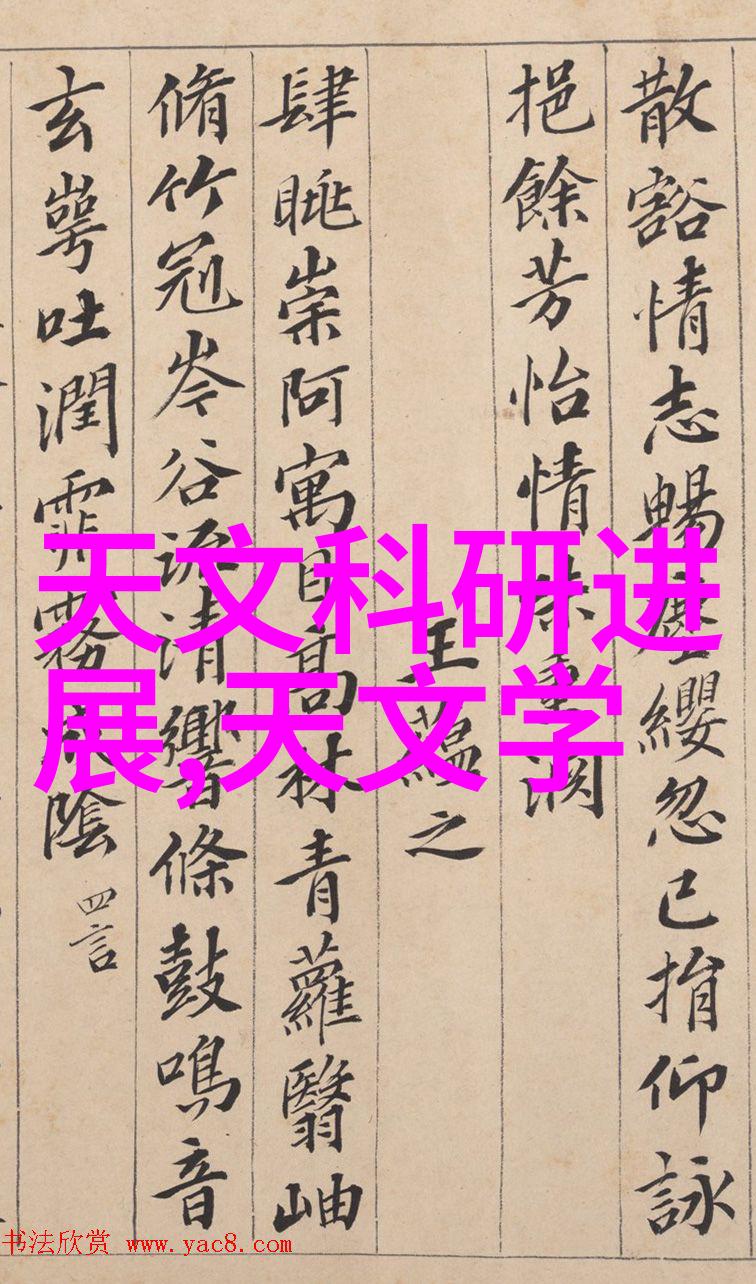 散豁情志暢塵纓忽已捐仰詠
挹餘芳怡情味重淵
王蘊之
肆眺崇阿寓目高林青蘿翳岫
脩竹冠岑谷流清響條鼓鳴音
玄崿吐潤霏霧成陰 四言
天文科研进
展,天文学
书法欣赏 www.yac8.com